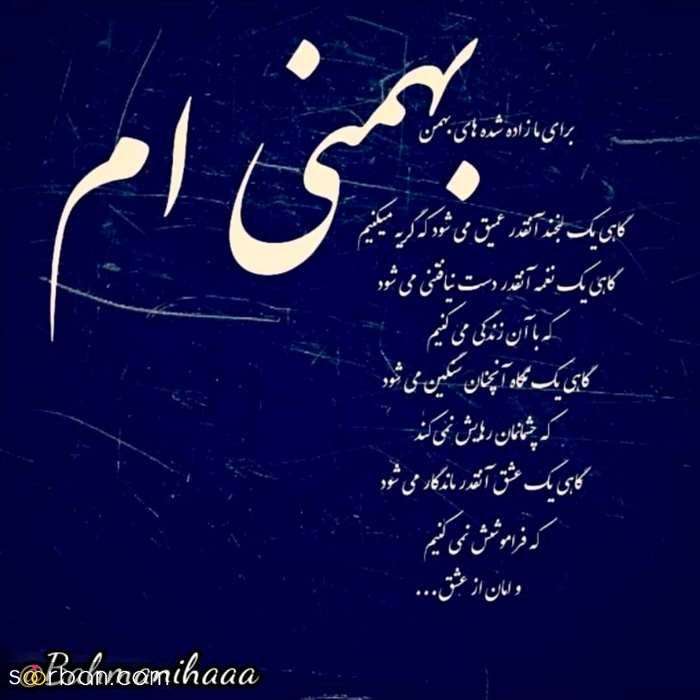 بهمنی ام
برای ما زاده شده های بهمن
گاهی یک لبخند آنقدر عمیق می شود که گریه میکنیم
گاهی یک نغمه آنقدر دست نیافتنی می شود
که با آن زندگی می کنیم
گاهی یک نگاه آنچنان سنگین می شود
که چشمانمان رهایش نمی کند
گاهی یک عشق آنقدر ماندگار می شود
که فراموشش نمی کنیم
و امان از عشق...
@Bahmanihaaa